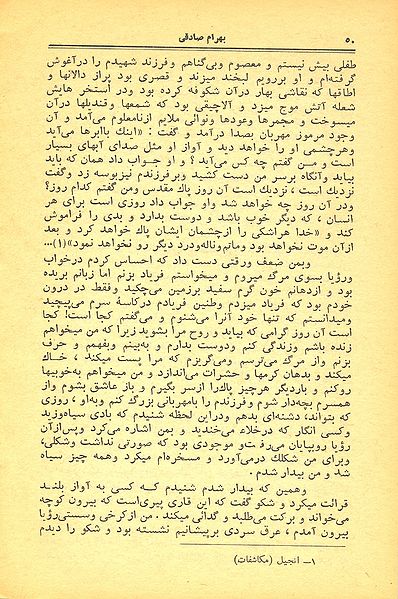 ۵۰ بهرام صادقی
طفلی بیش نیستم و معصوم وبی‌گناهم وفرزند شهیدم را درآغوش
گرفته‌ام و او بررویم لبخند میزند و قصری بود پراز دالانها و
اطاقها که نقاشی بهار درآن شکوفه کرده بود ودر استخر هایش
شعله آتش موج میزد و آلاچیقی بود که شمعها وقندیلها درآن
میسوخت و مجمرها وعودها ونوائی ملایم ازنامعلوم می‌آمد و آن
وجود مرموز مهربان بصدا درآمد و گفت : «اینك باابرها می‌آید
وهرچشمی او را خواهد دید و آواز او مثل صدای آبهای بسیار
است و من گفتم چه کس می‌آید ؟ و او جواب داد همان که باید
بیاید وآنگاه برسر من دست کشید وبرفرزندم نیزبوسه زد وگفت
نزدیك است ، نزدیك است آن روز پاك مقدس ومن گفتم کدام روز؟
ودر آن روز چه خواهد شد واو جواب داد روزی است برای هر
انسان ، که دیگر خوب باشد و دوست بدارد و بدی را فراموش
کند و «خدا هراشکی را ازچشمان ایشان پاك خواهد کرد و بعد
ازآن موت نخواهد بود وماتم‌وناله‌ودرد دیگر رو نخواهد نمود»(۱)...
وبمن ضعف ورقتی دست داد که احساس کردم درخواب
ورؤیا بسوی مرگ میروم و میخواستم فریاد بزنم اما زبانم بریده
بود و ازدهانم خون گرم سفید برزمین می‌چکید وفقط در درون
خودم بود که فریاد میزدم وطنین فریادم درکاسهٔ سرم می‌پیچید
ومیدانستم که تنها خود آنرا می‌شنوم و می‌گفتم کجا است! کجا
است آن روز گرامی که بیاید و روح مرا بشوید زیرا که من میخواهم
زنده باشم وزندگی کنم ودوست بدارم و به‌بینم وبفهمم و حرف
بزنم واز مرگ می‌ترسم ومی‌گریزم که مرا پست میکند ، خاك
میکند و بدهان کرمها و حشرات می‌اندازد و من میخواهم به‌خوبیها
روکنم و باردیگر هرچیز پاك‌را ازسر بگیرم و باز عاشق بشوم واز
همسرم بچه‌دار شوم وفرزندم را بامهربانی بزرگ کنم وبه‌او ، روزی
که بتواند، دشنه‌ای بدهم ودراین لحظه شنیدم که بادی سیاه‌وزید
وکسی انگار که درخلاء می‌خندید و بمن اشاره می‌کرد وپس‌ازآن
رؤیا روبپایان می‌رفت‌و موجودی بود که صورتی نداشت وشکلی،
وبرای من شکلك درمی‌آورد و مسخره‌ام میکرد وهمه چیز سیاه
شد و من بیدار شدم .
وهمین که بیدار شدم شنیدم که کسی به آواز بلند
قرائت میکرد و شکو گفت که این قاری پیری‌است که بیرون کوچه
می‌خواند و برکت می‌طلبد و گدائی میکند . من ازکرخی وسستی‌رؤیا
بیرون آمدم ، عرق سردی برپیشانیم نشسته بود و شکو را دیدم
۱ــ انجیل (مکاشفات)